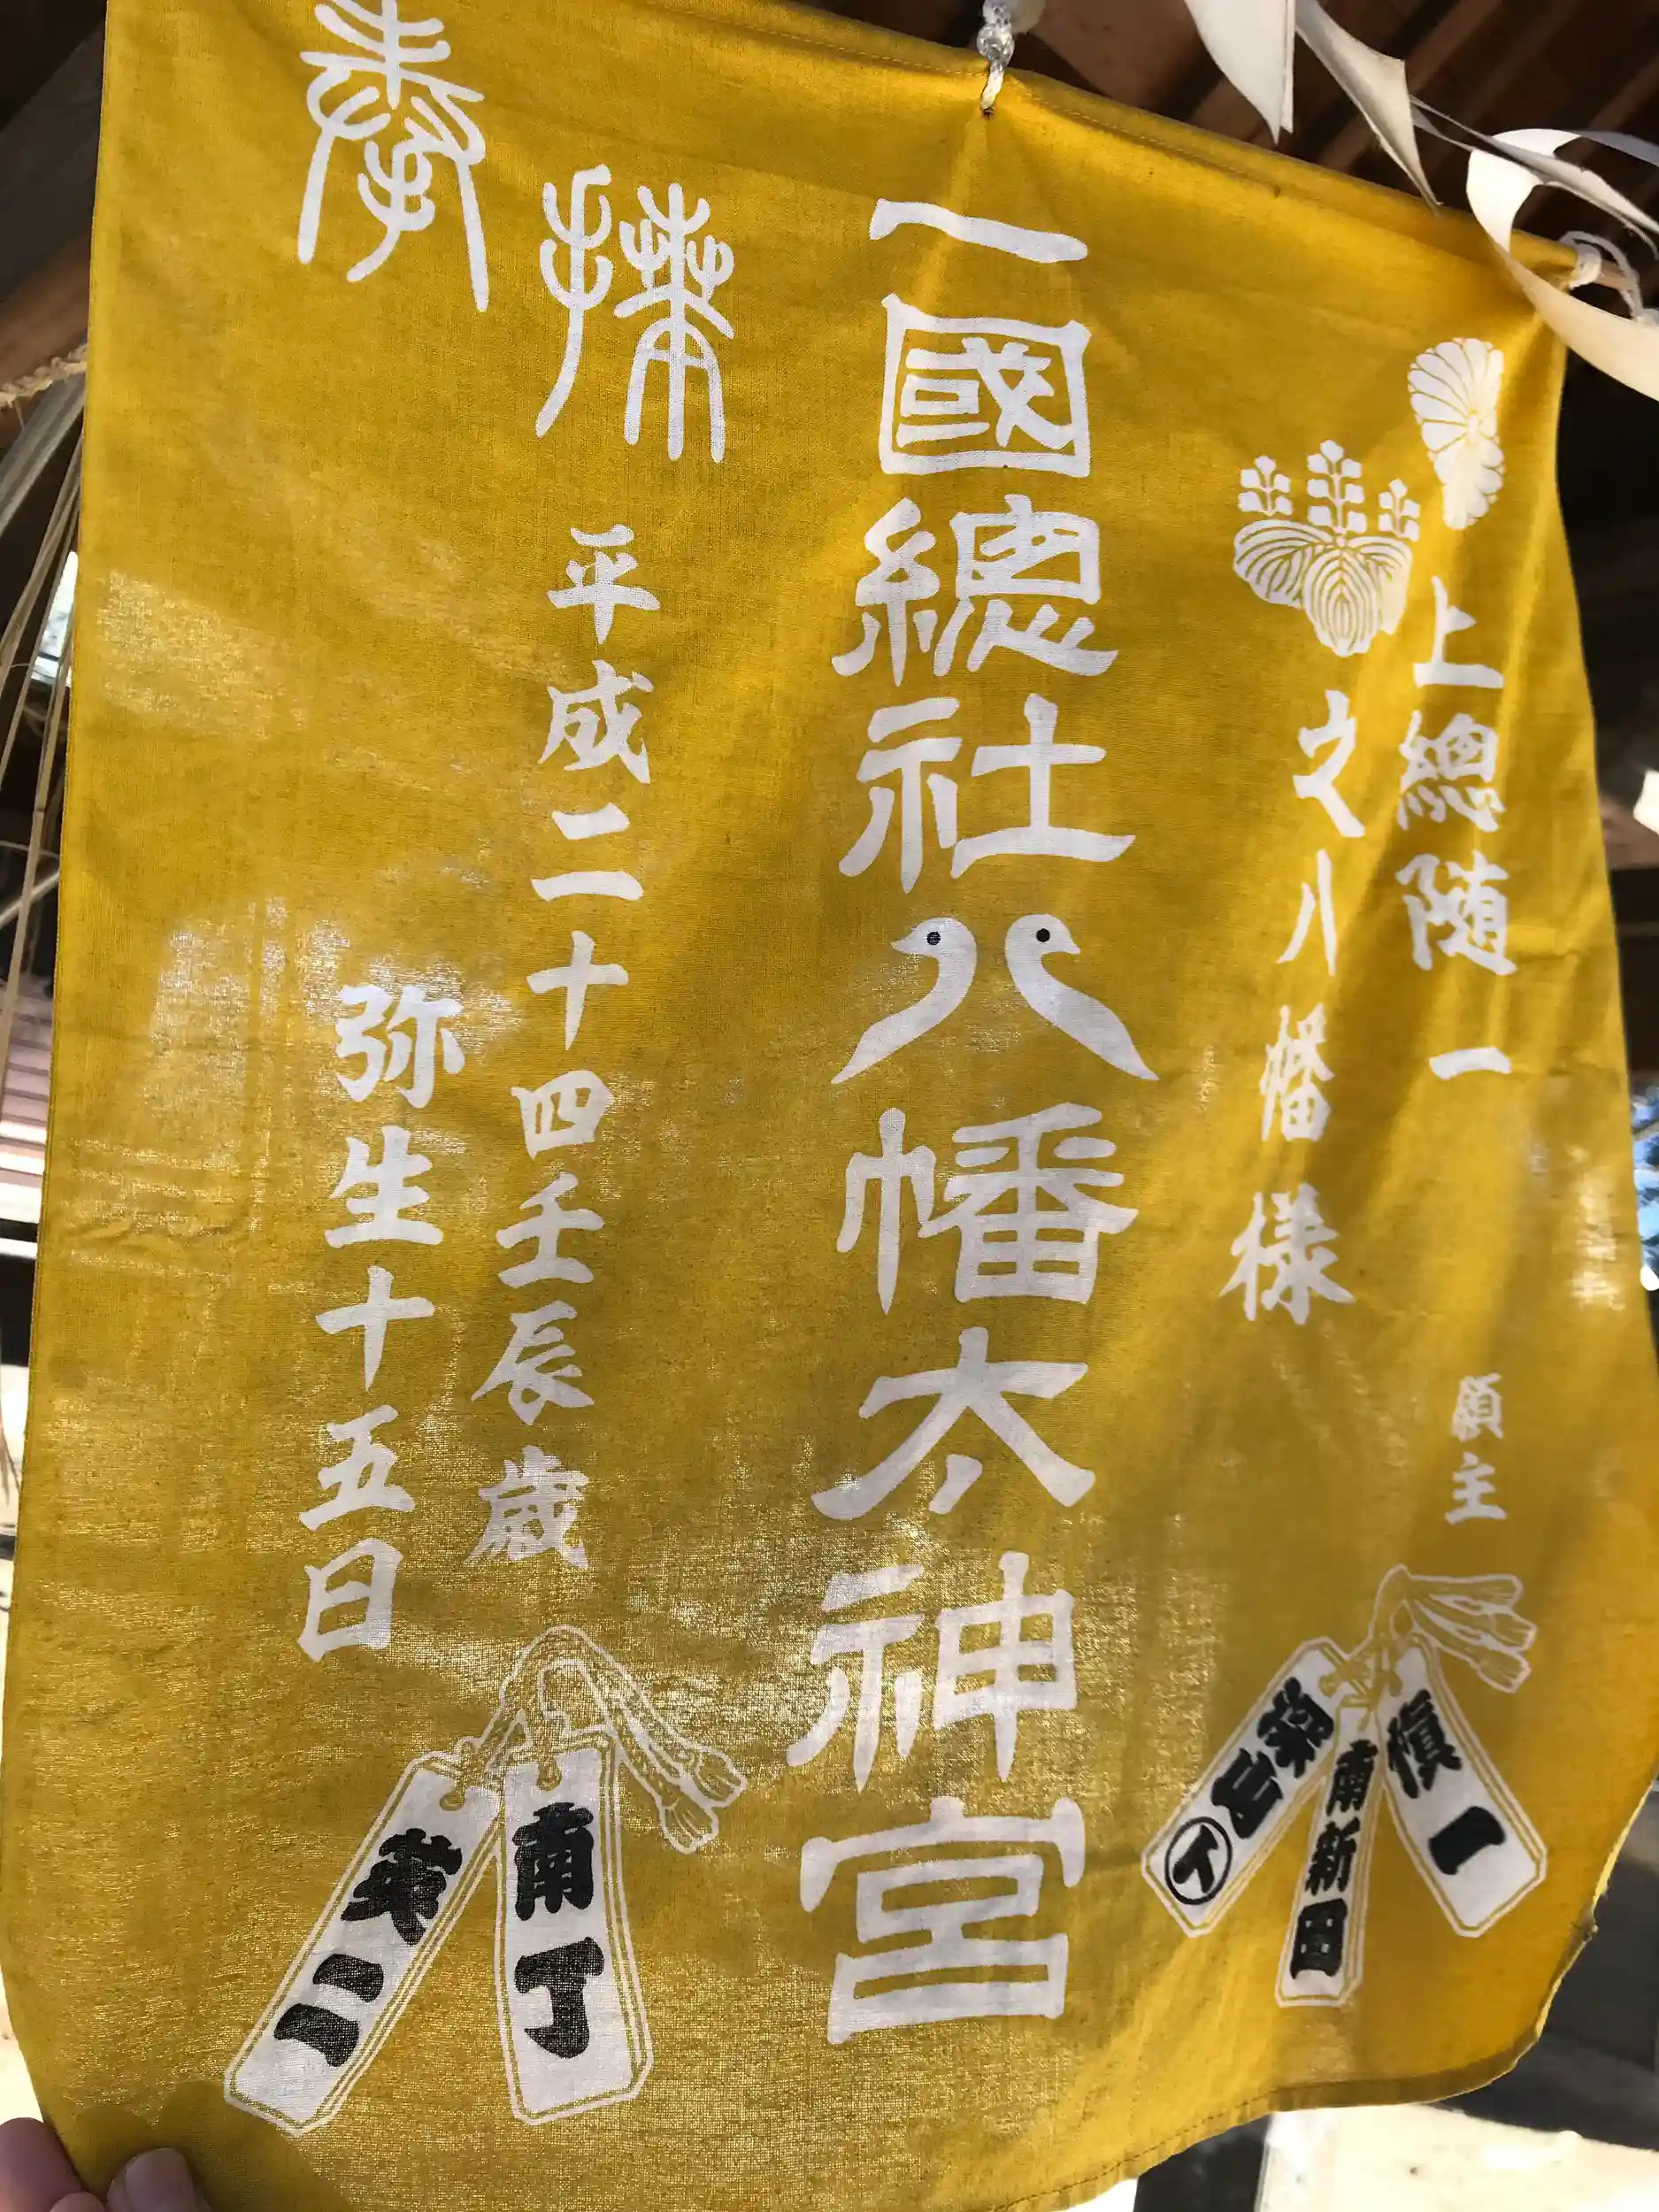 上總随一
之八幡様
願主
槇一
南新田
一國總社八幡太神宮
奉
捧
平成二十四壬辰歳
弥生十五日
南丁